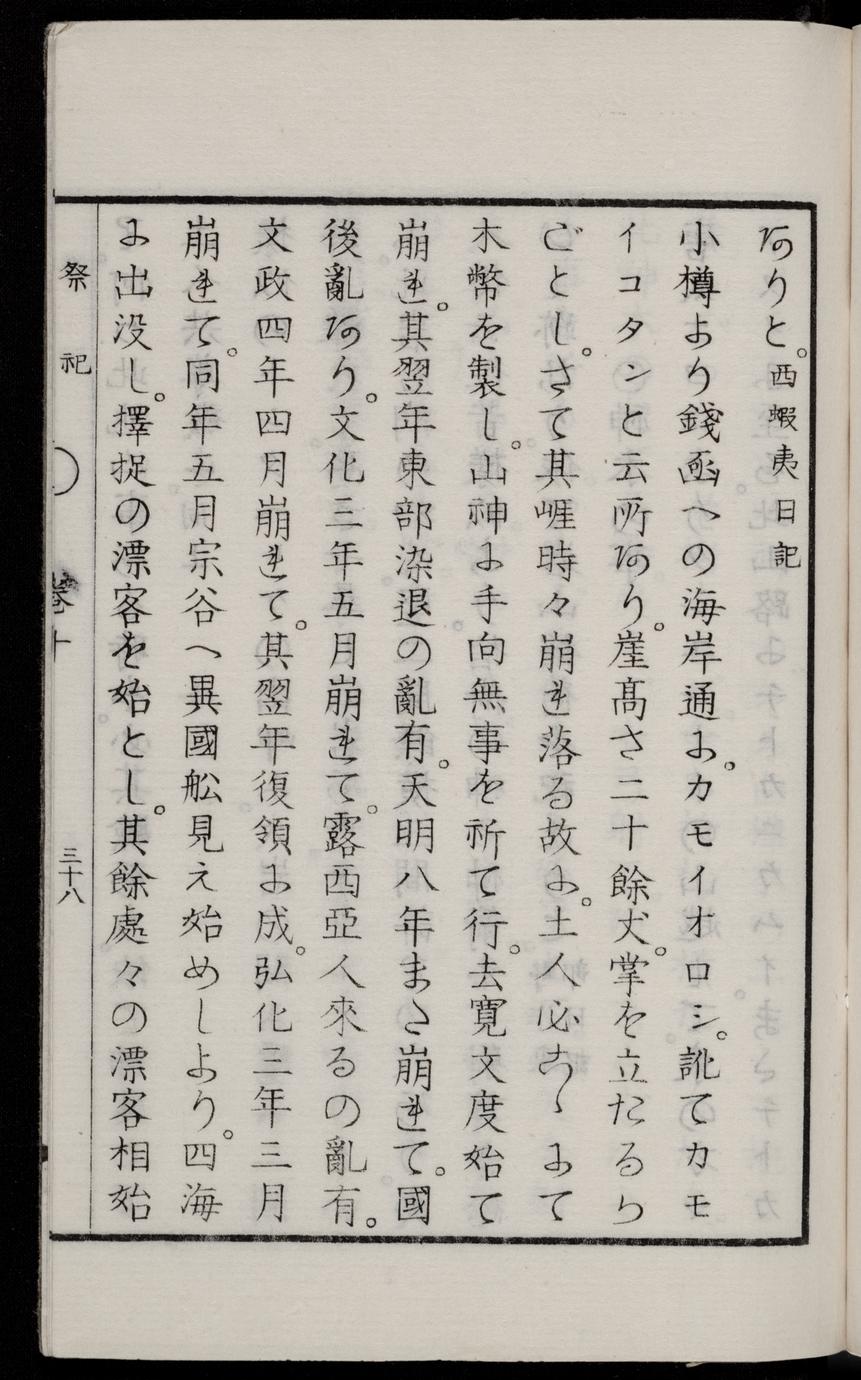 ありと。西蝦夷日記
小樽より錢函への海岸通に。カモイオロシ。訛てカモ
イコタンと云所あり。崖高さ二十餘丈。掌を立たるか
ごとし。さて其崕時々崩れ落る故に。土人必こゝにて
木幣を製し。山神に手向無事を祈て行。去寛文度始て
崩れ。其翌年東部染退の亂有。天明八年まさ崩れて。國
後亂あり。文化三年五月崩れて。露西亞人來るの亂有。
文政四年四月崩れて。其翌年復領に成。弘化三年三月
崩れて。同年五月宗谷へ異國舩見え始めしより。四海
に出没し。擇捉の漂客を始とし。其餘處々の漂客相始
祭祀
巻十
三十八